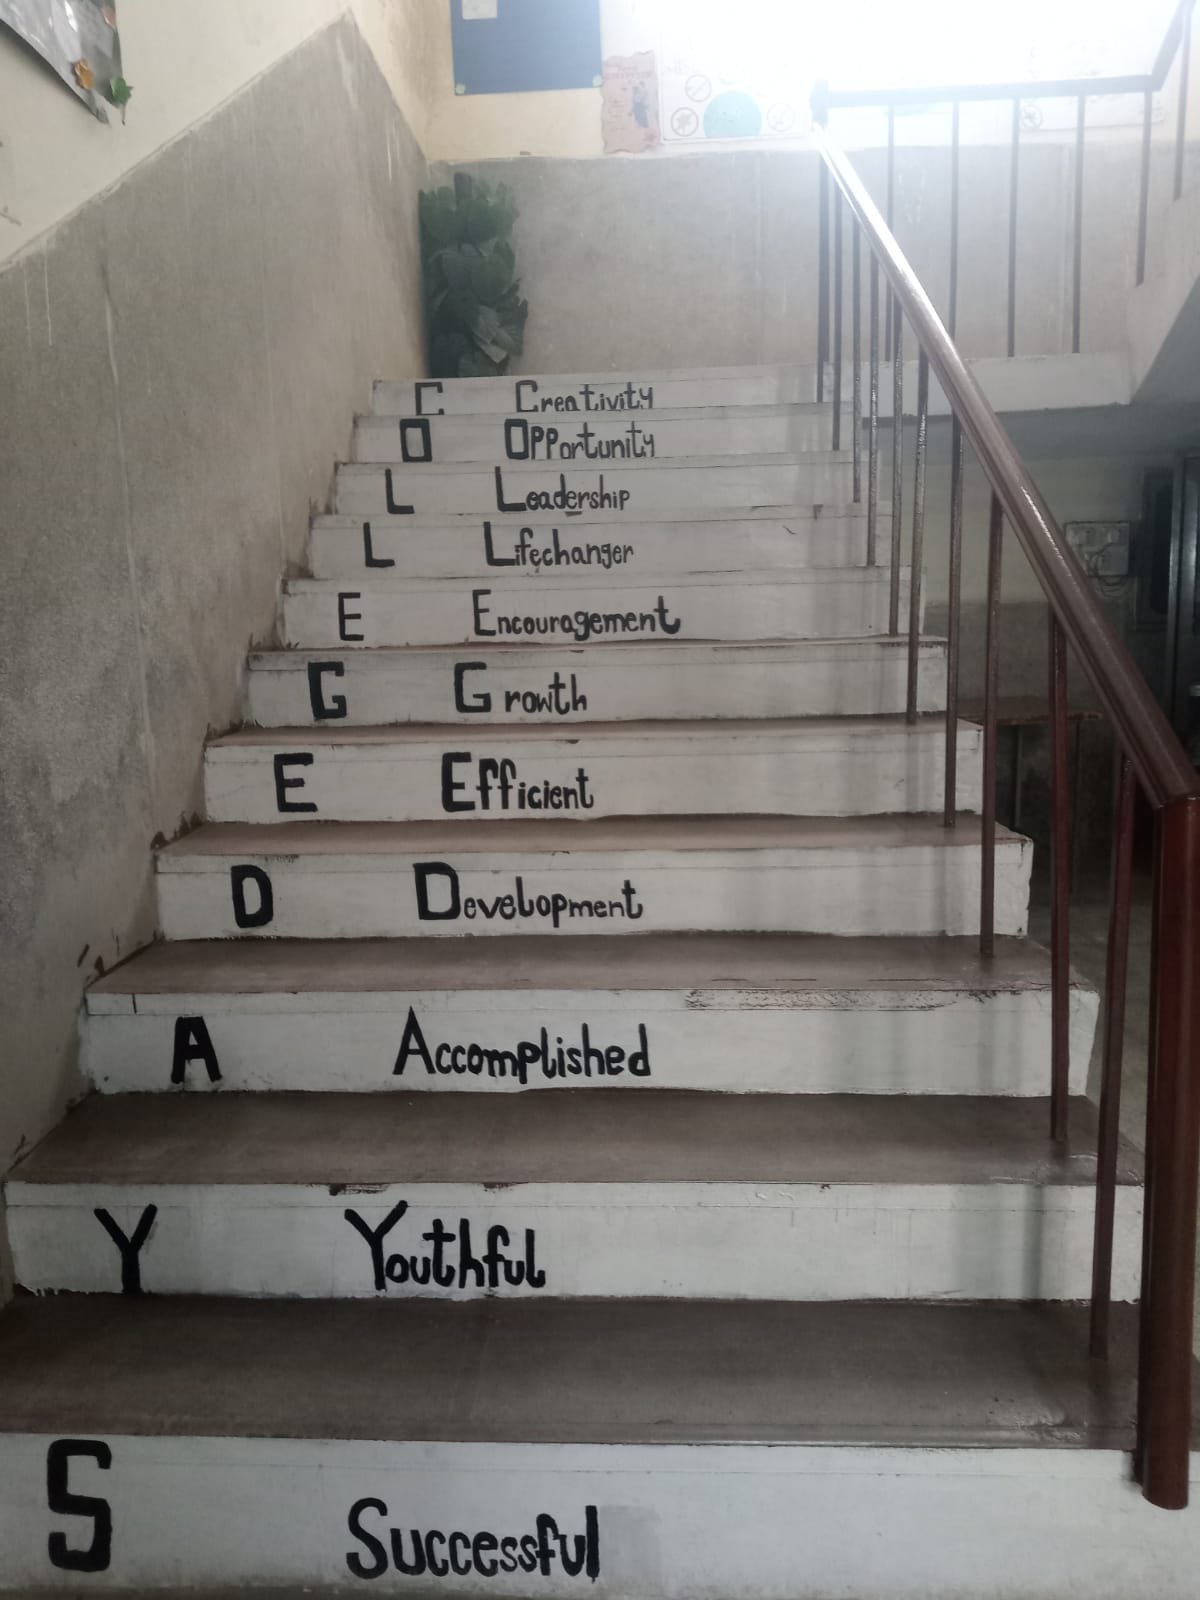 C Creativity
O Opportunity
L Leadership
L Lifechanger
E Encouragement
G Growth
E Efficient
D Development
A Accomplished
Y Youthful
S Successful